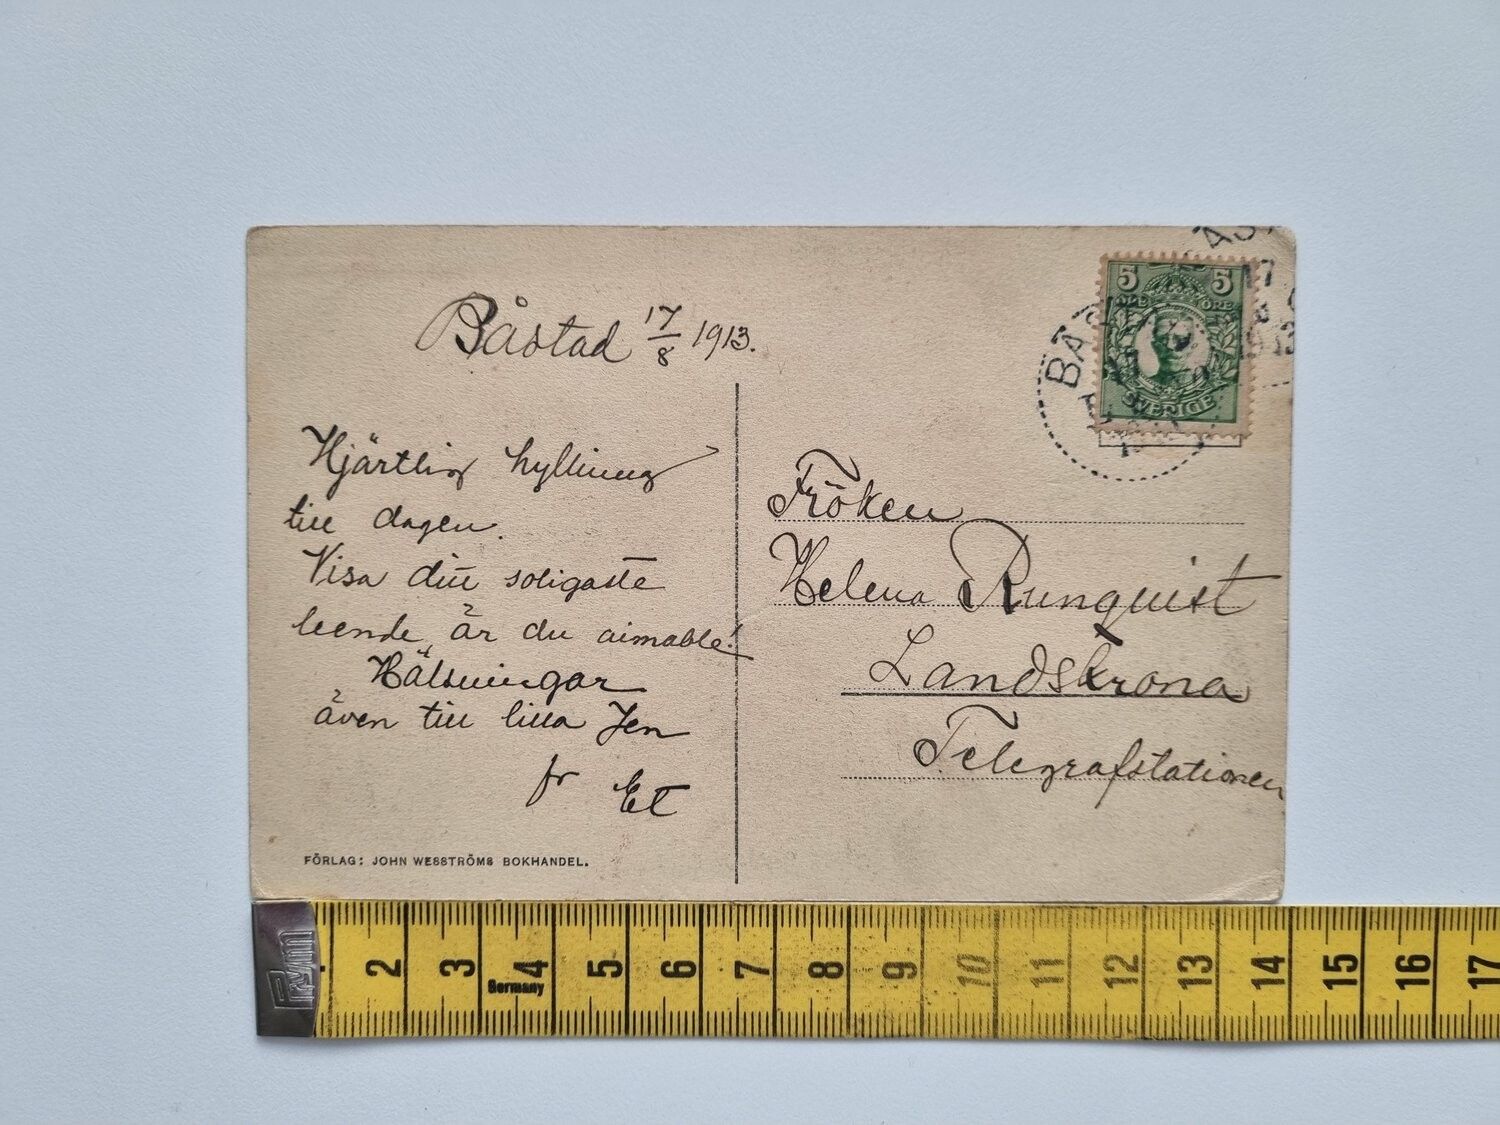 Båstad 17/8 1913.
Hjärtlig hyllning
till dagen.
Visa ditt soligaste
leende, är du aimable!
Hälsningar
även till lilla Jen
fr Et
FÖRLAG: JOHN WESSTRÖMS BOKHANDEL.
5 5
ÖRE
SVERIGE
BÅS
17
8
1913
Fröken
Helena Runquist
Landskrona
Telegrafstationen
Prym
2 3 4 5 6 7 8 9 10 11 12 13 14 15 16 17
Germany